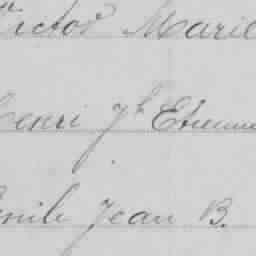 Victor Marie
Henri Jh Etienne
Emile Jean B.